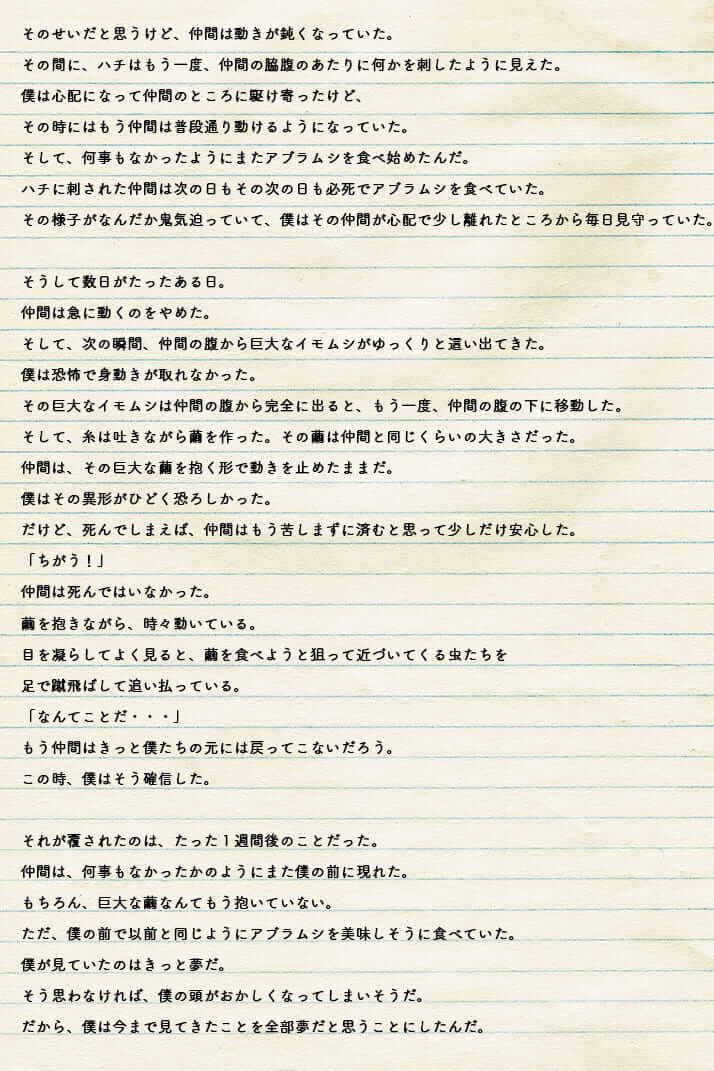 そのせいだと思うけど、仲間は動きが鈍くなっていた。
その間に、ハチはもう一度、仲間の脇腹のあたりに何かを刺したように見えた。
僕は心配になって仲間のところに駆け寄ったけど、
その時にはもう仲間は普段通り動けるようになっていた。
そして、何事もなかったようにまたアブラムシを食べ始めたんだ。
ハチに刺された仲間は次の日もその次の日も必死でアブラムシを食べていた。
その様子がなんだか鬼気迫っていて、僕はその仲間が心配で少し離れたところから毎日見守っていた。
そうして数日がたったある日。
仲間は急に動くのをやめた。
そして、次の瞬間、仲間の腹から巨大なイモムシがゆっくりと這い出てきた。
僕は恐怖で身動きが取れなかった。
その巨大なイモムシは仲間の腹から完全に出ると、もう一度、仲間の腹の下に移動した。
そして、糸は吐きながら繭を作った。その繭は仲間と同じくらいの大きさだった。
仲間は、その巨大な繭を抱く形で動きを止めたままだ。
僕はその異形がひどく恐ろしかった。
だけど、死んでしまえば、仲間はもう苦しまずに済むと思って少しだけ安心した。
「ちがう！」
仲間は死んではいなかった。
繭を抱きながら、時々動いている。
目を凝らしてよく見ると、繭を食べようと狙って近づいてくる虫たちを
足で蹴飛ばして追い払っている。
「なんてことだ・・・」
もう仲間はきっと僕たちの元には戻ってこないだろう。
この時、僕はそう確信した。
それが覆されたのは、たった１週間後のことだった。
仲間は、何事もなかったかのようにまた僕の前に現れた。
もちろん、巨大な繭なんてもう抱いていない。
ただ、僕の前で以前と同じようにアブラムシを美味しそうに食べていた。
僕が見ていたのはきっと夢だ。
そう思わなければ、僕の頭がおかしくなってしまいそうだ。
だから、僕は今まで見てきたことを全部夢だと思うことにしたんだ。